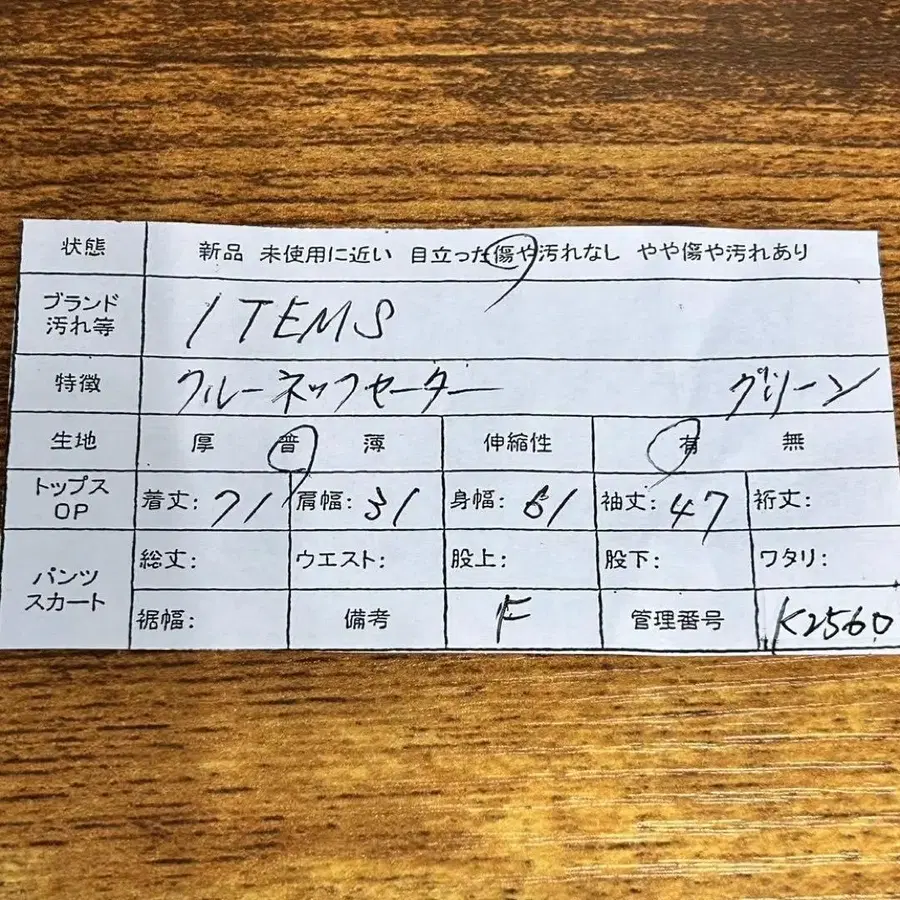 状態 新品 未使用に近い 目立った傷や汚れなし やや傷や汚れあり
ブランド
汚れ等
ITEMS
特徴 クルーネックセーター グリーン
生地 厚 普 薄 伸縮性 有 無
トップス
OP
着丈: 71 肩幅: 31 身幅: 61 袖丈: 47 裄丈:
パンツ
スカート
総丈: ウエスト: 股上: 股下: ワタリ:
裾幅: 備考 F 管理番号 K2560